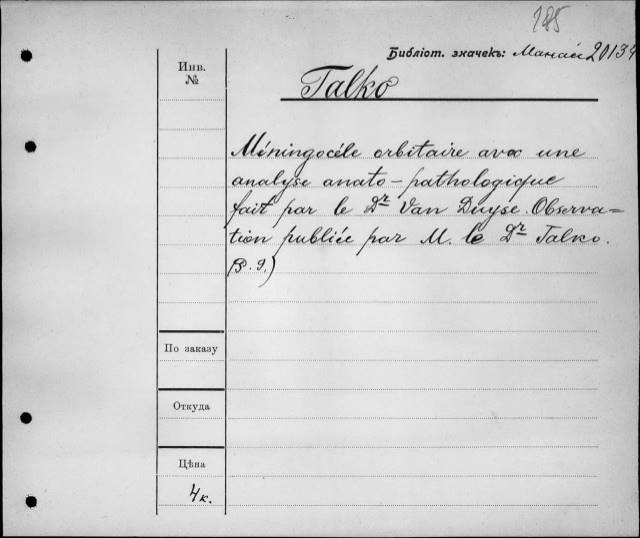 185
Библіот. значекъ: 20134
Инв.
№
Talko
Méningocéle orbitaire avec une
analyse anato-pathologique
fait par le Dr Van Duyse. Observa=
tion publiée par M. le Dr Talko.
9.)
По заказу
Откуда
Цѣна
4 к.